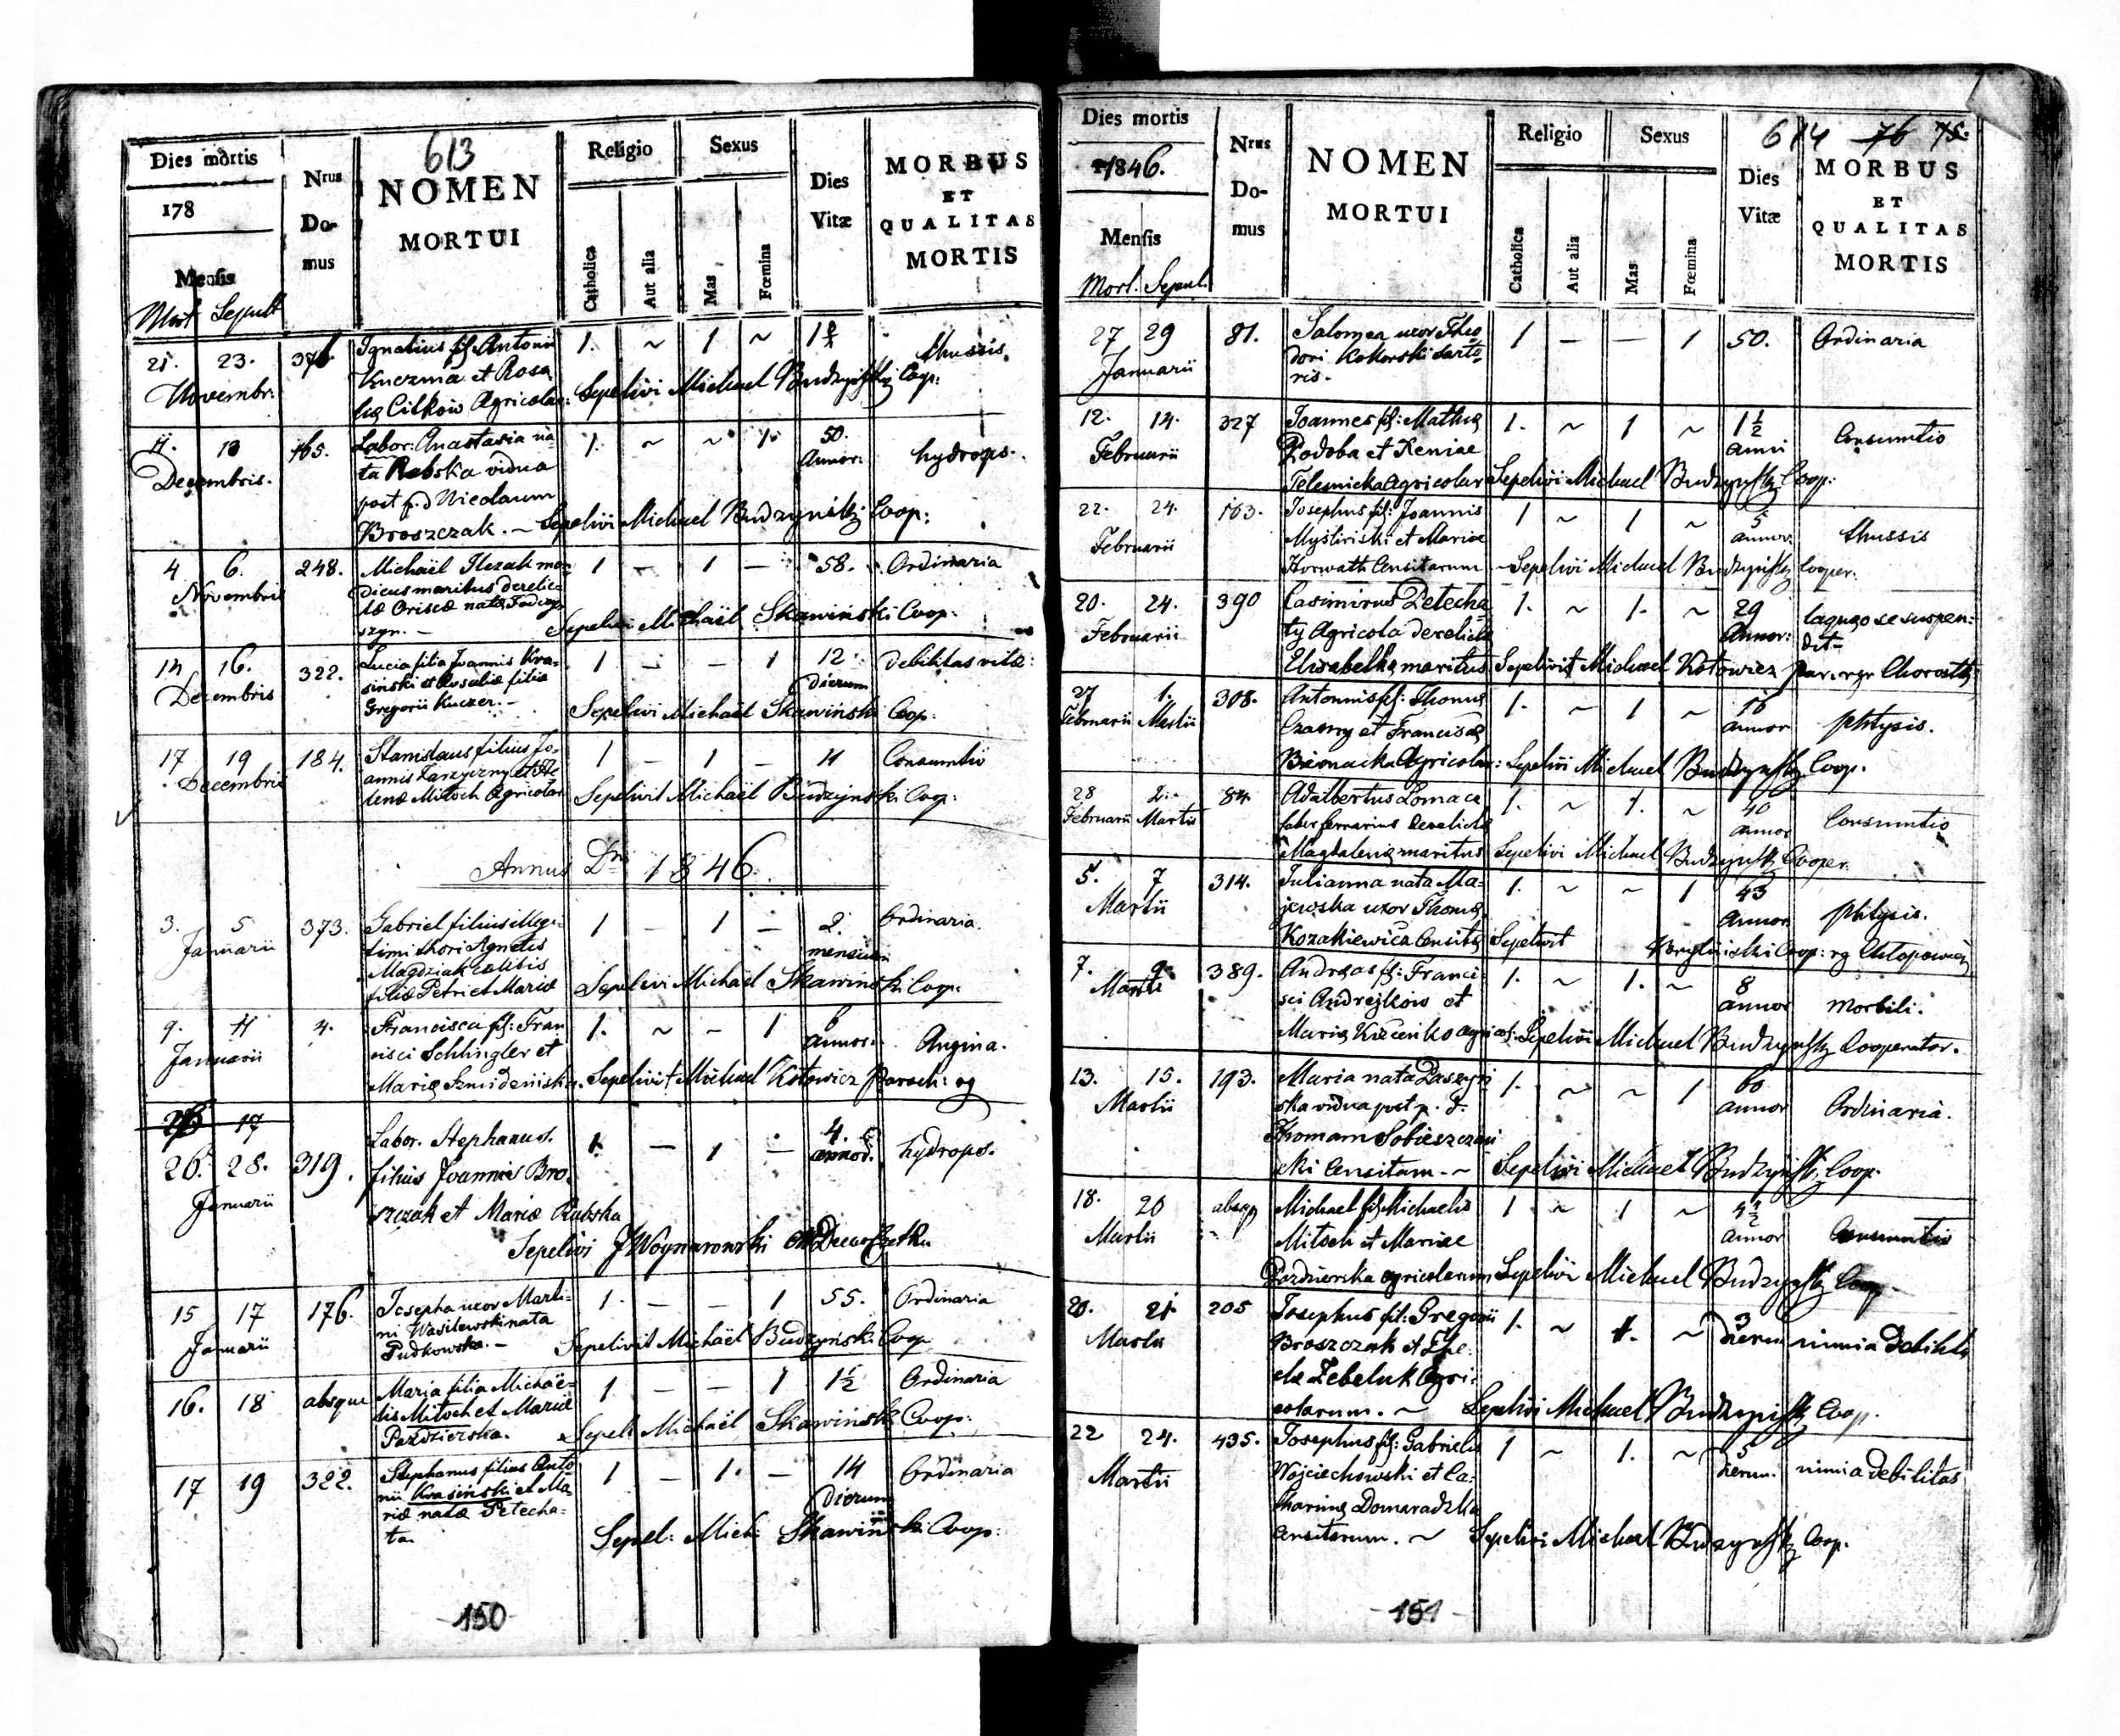 613
Dies mortis
178
Mensis
Mort Sepult
Nrus
Do-
mus
NOMEN
MORTUI
Religio
Catholica
Aut alia
Sexus
Mas
Fœmina
Dies
Vitæ
MORBUS
ET
QUALITAS
MORTIS
21. 23. 376 Ignatius fil. Antonii 1. ~ 1 ~ thussis.
Novembr. Kuczma et Rosa
Agricolar: Sepelivi Michael Budzyński Coop:
11. 13 165. Labor: Anastasia na- 1. ~ ~ 1. 50. hydrops.
Decembris. ta Rebska vidua Annor:
post p. d Nicolaum
Broszczak. ~ Sepelivi Michael Budzyński Coop:
4 6. 248. Michael Ilczak men- 1 - 1 - 58. Ordinaria
Novembris dicus maritus derelic-
tæ natæ
Sepelivi Michaël Skawiński Coop:
14 16. 322. Lucia filia Joannis Kra- 1 - - 1 12 debilitas vitæ:
Decembris sinski et Rosaliæ filiæ dierum
Gregorii Kuczer. - Sepelivi Michaël Skawiński Coop:
17 19 184. Stanislaus filius Jo- 1 - 1 - 11 Consumtio
Decembris annis et He-
lenæ Mitoch Agricolar Sepelivit Michaël Budzynski Coop:
Annus Dni 1846.
3. 5 373. Gabriel filius illegi- 1 - 1 - 2. Ordinaria.
Januarii timi thori Agnetis mensium
Magdziak cælibis
filiæ Petri et Mariæ Sepelivi Michaël Skawinski Coop.
9. 11 4. Francisca fil: Fran 1. ~ - 1 6 Angina.
Januarii cisci Schlingler et annor:
Mariæ Sepelivit Michael Kotowicz Paroch: rg
17
26. 28. 319. Labor. Stephanus. 1. - 1 - 4. hydrops.
Januarii filius Joannis Bro- annor.
szczak et Mariæ Rabska
Sepelivi J Woynarowski
15 17 176. Josepha uxor Marti- 1. - - 1 55. Ordinaria
Januarii ni Wasilewski nata
Pudkowska. - Sepelivit Michaël Budzynski Coop
16. 18 absque Maria filia Michaë- 1 - - 1 1½ Ordinaria
lis Mitoch et Mariæ
Pazdzierska. Sepeli Michaël Skawiński Coop:
17 19 322. Stephanus filius Anto 1 - 1. - 14 Ordinaria
nii Krasiński et Ma- dierum
riæ natæ Petecha-
ta. Sepel: Mich: Skawiński Coop:
150
614 76 75.
Dies mortis
1846.
Mensis
Mort. Sepul.
Nrus
Do-
mus
NOMEN
MORTUI
Religio
Catholica
Aut alia
Sexus
Mas
Fœmina
Dies
Vitæ
MORBUS
ET
QUALITAS
MORTIS
27 29 81. Salomea uxor Theo 1 - - 1 50. Ordinaria
Januarii dori Kokorski sarto-
ris.
12. 14. 327 Joannes fil: Mathiæ 1. ~ 1 ~ 1½ Consumtio
Februarii Podoba et Xeniae anni
agricolar Sepelivi Michael Budzyński Coop:
22. 24. 163. Josephus fil: Joannis 1 ~ 1 ~ 5 thussis
Februarii et Mariæ annor:
Horwath Censitarum ~ Sepelivi Michael Budzyński Cooper.
20. 24. 390 Casimirus Petecha 1. ~ 1. ~ 29 laqueo se suspen:
Februarii ty Agricola derelictæ Annor: dit-
Elisabethæ maritus Sepelivit Michael Kotowicz par. rgr
27 1. 308. Antonius fil: Thomæ 1. ~ 1 ~ 16 phtysis.
Februarii Martii Czarny et Franciscæ annor
Biernacka Agricolar: Sepelivi Michael Budzyński Coop.
28 2. 84. Adalbertus Lomaca 1. ~ 1. ~ 40 Consumtio
Februarii Martii faber ferrarius derelictæ annor
Magdalenæ maritus Sepelivi Michael Budzyński Cooper.
5. 7 314. Julianna nata Ma- 1. ~ ~ 1 43 phtysis.
Martii jewska uxor Thomæ Annor.
Kozakiewicz Censitæ Sepelivit Coop: rg
7. 9. 389. Andreas fil: Franci- 1. ~ 1. ~ 8 Morbili.
Martii sci Andrejków et annor
Mariæ agricol: Sepelivi Michael Budzyński Cooperator.
13. 15. 193. Maria nata 1. ~ ~ 1 60 Ordinaria.
Martii ska vidua post p. d. annor
Thomam Sobieszczań
ski Censitam. ~ Sepelivi Michael Budzyński Coop.
18. 20 absqu Michael fil Michaelis 1 ~ 1 ~ 4½ Consumtio
Martii Mitoch et Mariae annor
Pazdzierska agricolarum Sepelivi Michael Budzyński Coop.
20. 21. 205 Josephus fil: Gregorii 1. ~ 1. ~ 3 nimia debilit
Martii Broszczak et The- dierum
clæ Zebeluk Agri-
colarum. ~ Sepelivi Michael Budzyński Coop.
22 24. 435. Josephus fil: Gabrielis 1 ~ 1. ~ 5 nimia debilitas
Martii Wojciechowski et Ca- dierum.
tharinæ Domaradzka
Censitarum. ~ Sepelivi Michael Budzyński Coop.
151